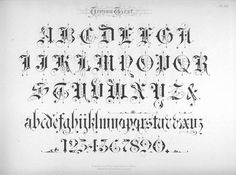 German Text.
ABCDEFGH
IJKLMNOPQR
STUVWXYZ&
abcdefghijklmnopqrstuvwxyz
1234567890.